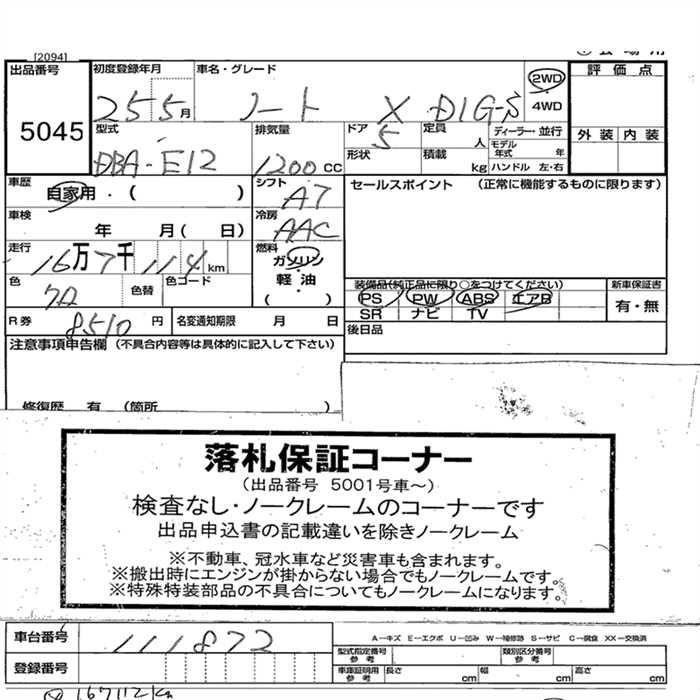 [2094]
出品番号 5045
初度登録年月 25 5月
車名・グレード ノート X DIG-S
2WD
4WD
評価点
外装 内装
型式 DBA-E12
排気量 1200CC
ドア 5
形状
定員 人
積載 kg
ディーラー・並行
モデル年式 年
ハンドル 左・右
車歴 自家用・( )
シフト A7
セールスポイント (正常に機能するものに限ります)
車検 年 月( 日)
冷房 AAC
走行 16万7千114km
燃料 ガソリン
軽油
( )
色
色替
色コード
装備品(純正品に限り○をつけてください)
PS PW ABS エアB
SR ナビ TV
新車保証書
有・無
R券 8510円
名変通知期限 月 日
後日品
注意事項申告欄 (不具合内容等は具体的に記入して下さい)
修復歴 有 (箇所 )
落札保証コーナー
(出品番号 5001号車~)
検査なし・ノークレームのコーナーです
出品申込書の記載違いを除きノークレーム
※不動車、冠水車など災害車も含まれます。
※搬出時にエンジンが掛からない場合でもノークレームです。
※特殊特装部品の不具合についてもノークレームになります。
車台番号 111872
A-キズ E-エクボ U-凹み W-補修跡 S-サビ C-腐食 XX-交換済
型式指定番号 参考
類別区分番号 参考
登録番号
車庫証明用 参考 長さ cm 幅 cm 高さ cm
167112km